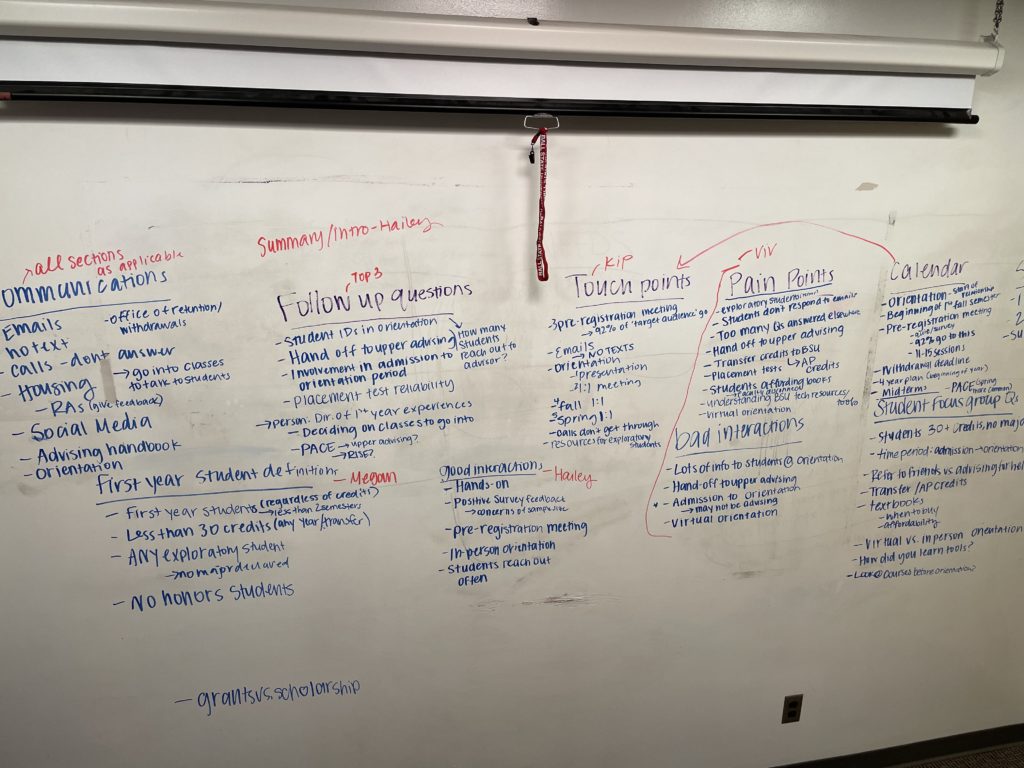 all sections
as applicable
ommunications
Emails
no text
- office of retention/
withdrawals
- calls - dont answer
→ go into classes
to talk to students
- Housing
- RAs (give feedback)
- Social Media
- Advising handbook
- Orientation
Summary/Intro-Hailey
TOP 3
Follow up questions
- Student IDs in orientation
- Hand off to upper advising
- Involvement in admission to
orientation period
→ How many
students
reach out to
advisor?
- Placement test reliability
→ person. Dir. of 1st year experiences
- Deciding on classes to go into
- PACE → upper advising?
→ RISE?
First year student definition
- Megan
- First year students (regardless of credits)
→ less than 2 semesters
- Less than 30 credits (any year/transfer)
- ANY exploratory student
→ no major declared
- No honors students
- grants vs. scholarship
good interactions
- Hailey
- Hands-on
- Positive Survey feedback
→ concerns of sample size
- pre-registration meeting
- In-person orientation
- Students reach out
often
Kip
Touch points
- 3 pre-registration meeting
→ 92% of "target audience" go
- Emails
→ NO TEXTS
- Orientation
→ presentation
→ 1:1 meeting
- fall 1:1
- Spring 1:1
- calls don't get through
- resources for exploratory
students
Viv
Pain Points
- exploratory students
- Students don't respond to emails
- Too many Qs answered elsewhere
- Hand off to upper advising
- Transfer credits to BSU
- Placement tests
↳ AP
credits
- Students affording books
- understanding BSU tech resources/
tools
- Virtual orientation
bad interactions
- Lots of info to students @ orientation
- Hand-off to upper advising
- Admission to orientation
→ may not be advising
- Virtual orientation
Calendar
- Orientation - start of
relationship
- Beginning of 1st fall semester
- Pre-registration meeting
- survey
- 92% go to this
- 11-15 sessions
- Withdrawl deadline
- 4 year plan (beginning of year)
- Midterms
- PACE (spring
Student Focus group Qs
- Students 30+ credits, no major
- time period: admission → orientation
- Refer to friends vs advising for help
- Transfer/AP credits
- textbooks
- when to buy
- affordability
- Virtual vs. in person orientation
- How did you learn tools?
- Look @ courses before orientation?